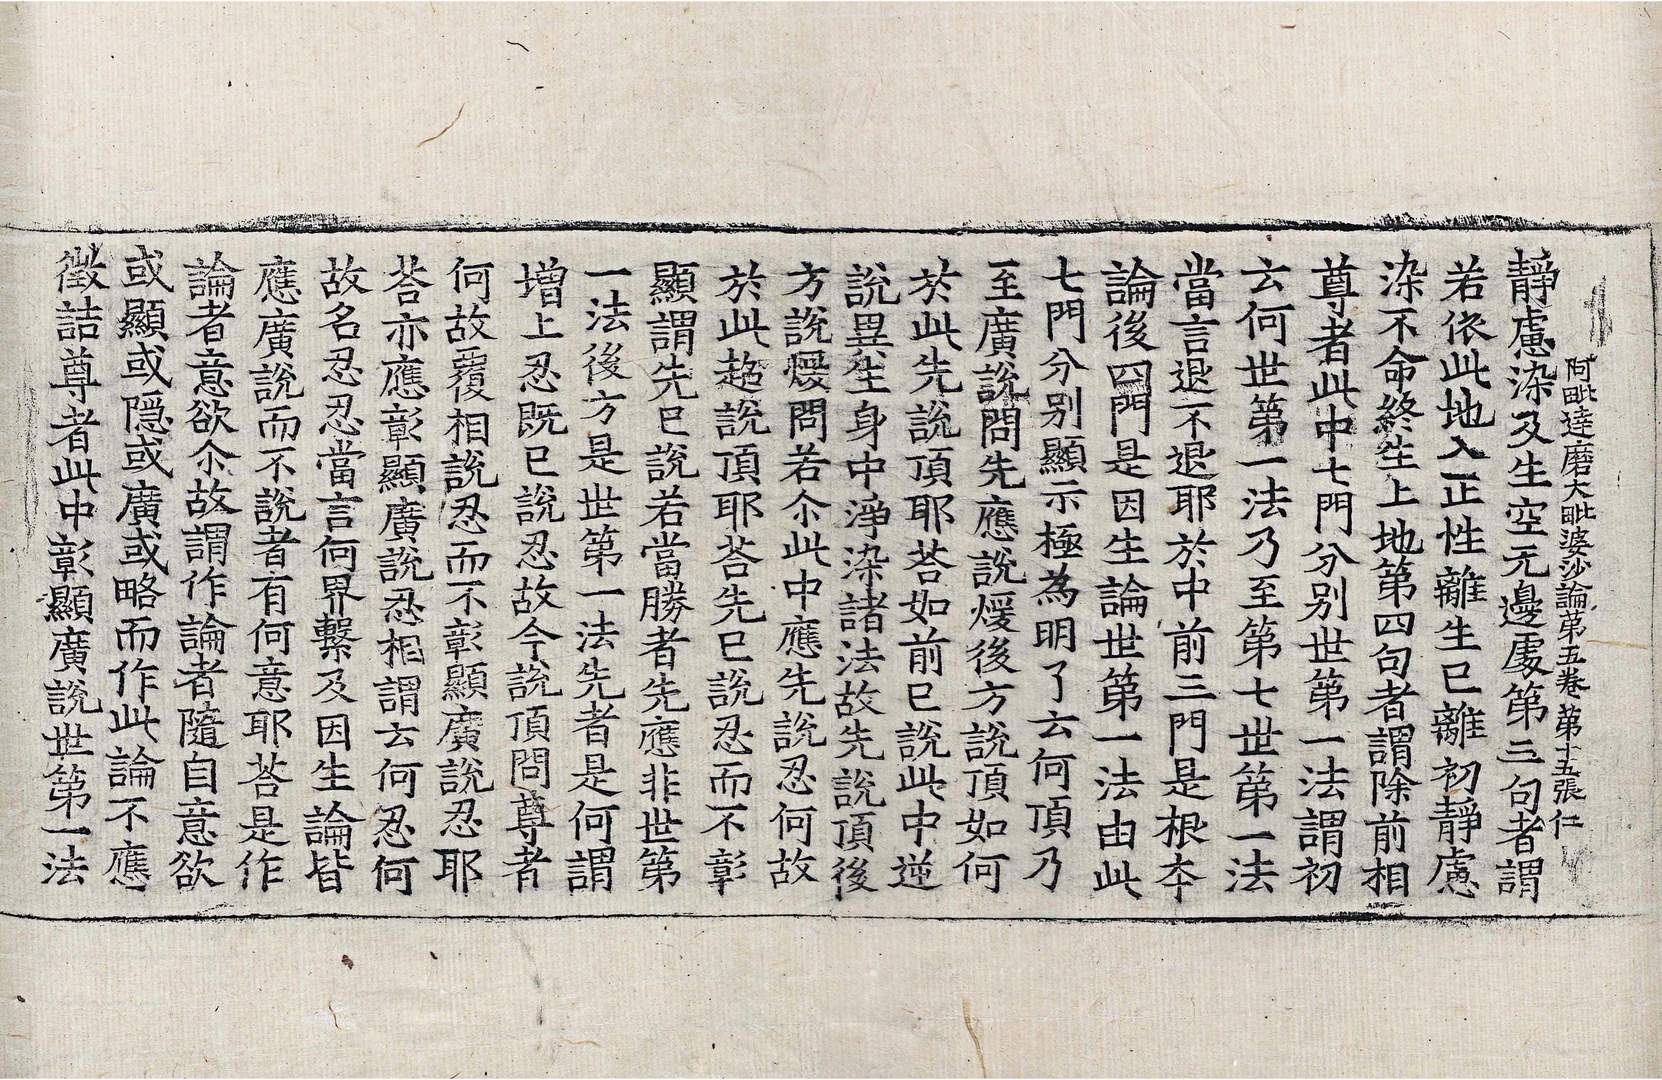 阿毗達磨大毗婆沙論第五卷 第十五張 仁
靜慮染及生空无邊處第三句者謂
若依此地入正性離生已離初靜慮
染不命終生上地第四句者謂除前相
尊者此中七門分別世第一法謂初
云何世第一法乃至第七世第一法
當言退不退耶於中前三門是根夲
論後四門是因生論世第一法由此
七門分別顯示極為明了云何頂乃
至廣說問先應說煖後方說頂如何
於此先說頂耶荅如前已說此中逆
說異生身中淨染諸法故先說頂後
方說煖問若尒此中應先說忍何故
於此超說頂耶荅先已說忍而不彰
顯謂先已說若當勝者先應非世第
一法後方是世第一法先者是何謂
增上忍既已說忍故今說頂問尊者
何故覆相說忍而不彰顯廣說忍耶
荅亦應彰顯廣說忍相謂云何忍何
故名忍忍當言何界繫及因生論皆
應廣說而不說者有何意耶荅是作
論者意欲尒故謂作論者隨自意欲
或顯或隱或廣或略而作此論不應
徵詰尊者此中彰顯廣說世第一法